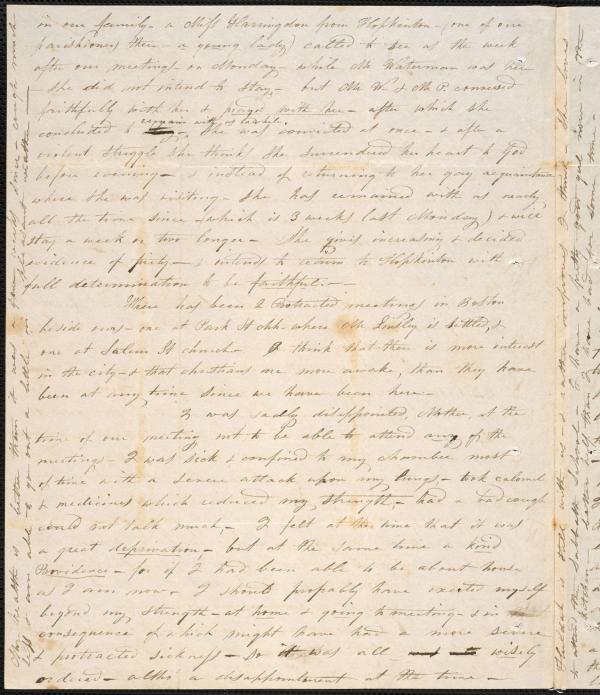 in our family - a Miss Harringdon from Hopkinton - (one of our
parishioners there - a young lady) called to see us the week
after our meetings on Monday - while Mr. Waterman was here
she did not intend to stay, - but Mr W. & Mr P. conversed
faithfully with her & prayd with her - after which she
remain with us awhile.
concluded to - She was convicted at once - & after a
violent struggle she thinks she surrendered her heart to God
before evening - & instead of returning to her gay acquaintance
where she was visiting - she has remained with us nearly
all the time since (which is 3 weeks last Monday) & will
stay a week or two longer - She gives increasing & decided
evidence of piety - & intends to return to Hopkinton with a
full determination to be faithful. -
There has been 2 Protracted meetings in Boston
beside ours - one at Park St chh. where Mr Linsley is settled, &
one at Salem St church - I think that there is more interest
in the city - & that christians are more awake, than they have
been at any time since we have been here -
I was sadly disappointed, Mother, at the
time of our meeting not to be able to attend any of the
meetings - I was sick & confined to my chamber most
of time with a severe attack upon my lungs - took calomel
& medicines which reduced my strength - had a bad cough
could not talk much, - I felt at the time that it was
a great deprivation - but at the same time a kind
Providence - for if I had been able to be about house
as I am now - I should probably have exerted myself
beyond my strength - at home & going to meeting - & in
consequence of which might have had a more severe
& protracted sickness - So it was all wisely
ordered - altho' a disappointment at the time -
My health is better than it was a few weeks since cough much
less & I am able to go out a little in pleasant weather
is still with us & rather improves I think - She loves
to attend the Sabbath School - I have a pretty good girl now in the
kitchen - better than I have had for some time -